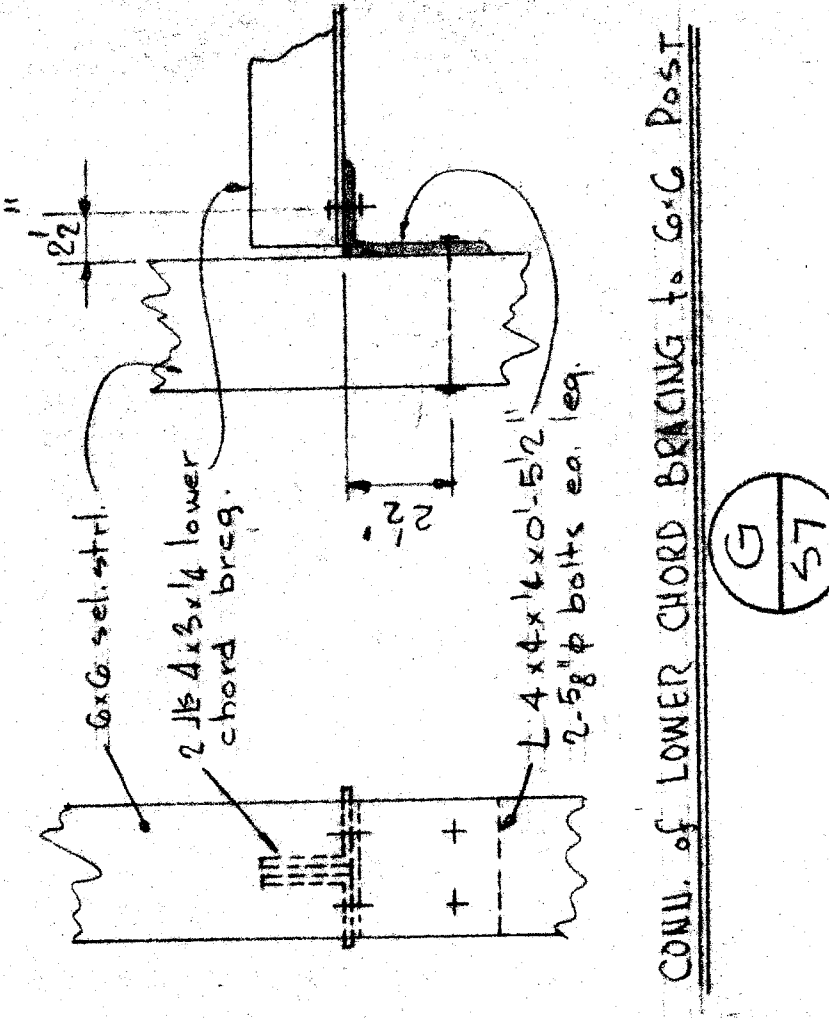 6x6 sel. strl.
2 JLs 4x3x1/4 lower
chord brcg.
2 1/2"
2 1/2"
L 4x4x1/4x0'-5 1/2"
2-5/8"φ bolts ea. leg.
CONN. of LOWER CHORD BRACING to 6x6 POST
G
57